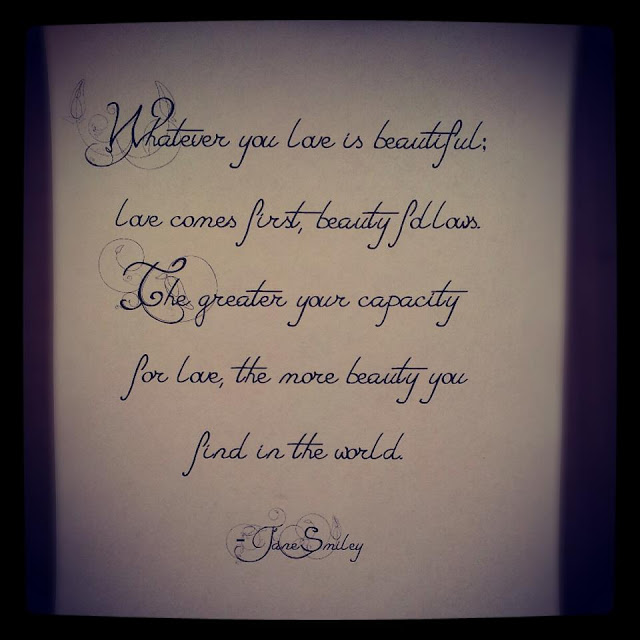 Whatever you love is beautiful;
love comes first, beauty follows.
The greater your capacity
for love, the more beauty you
find in the world.
- Jane Smiley